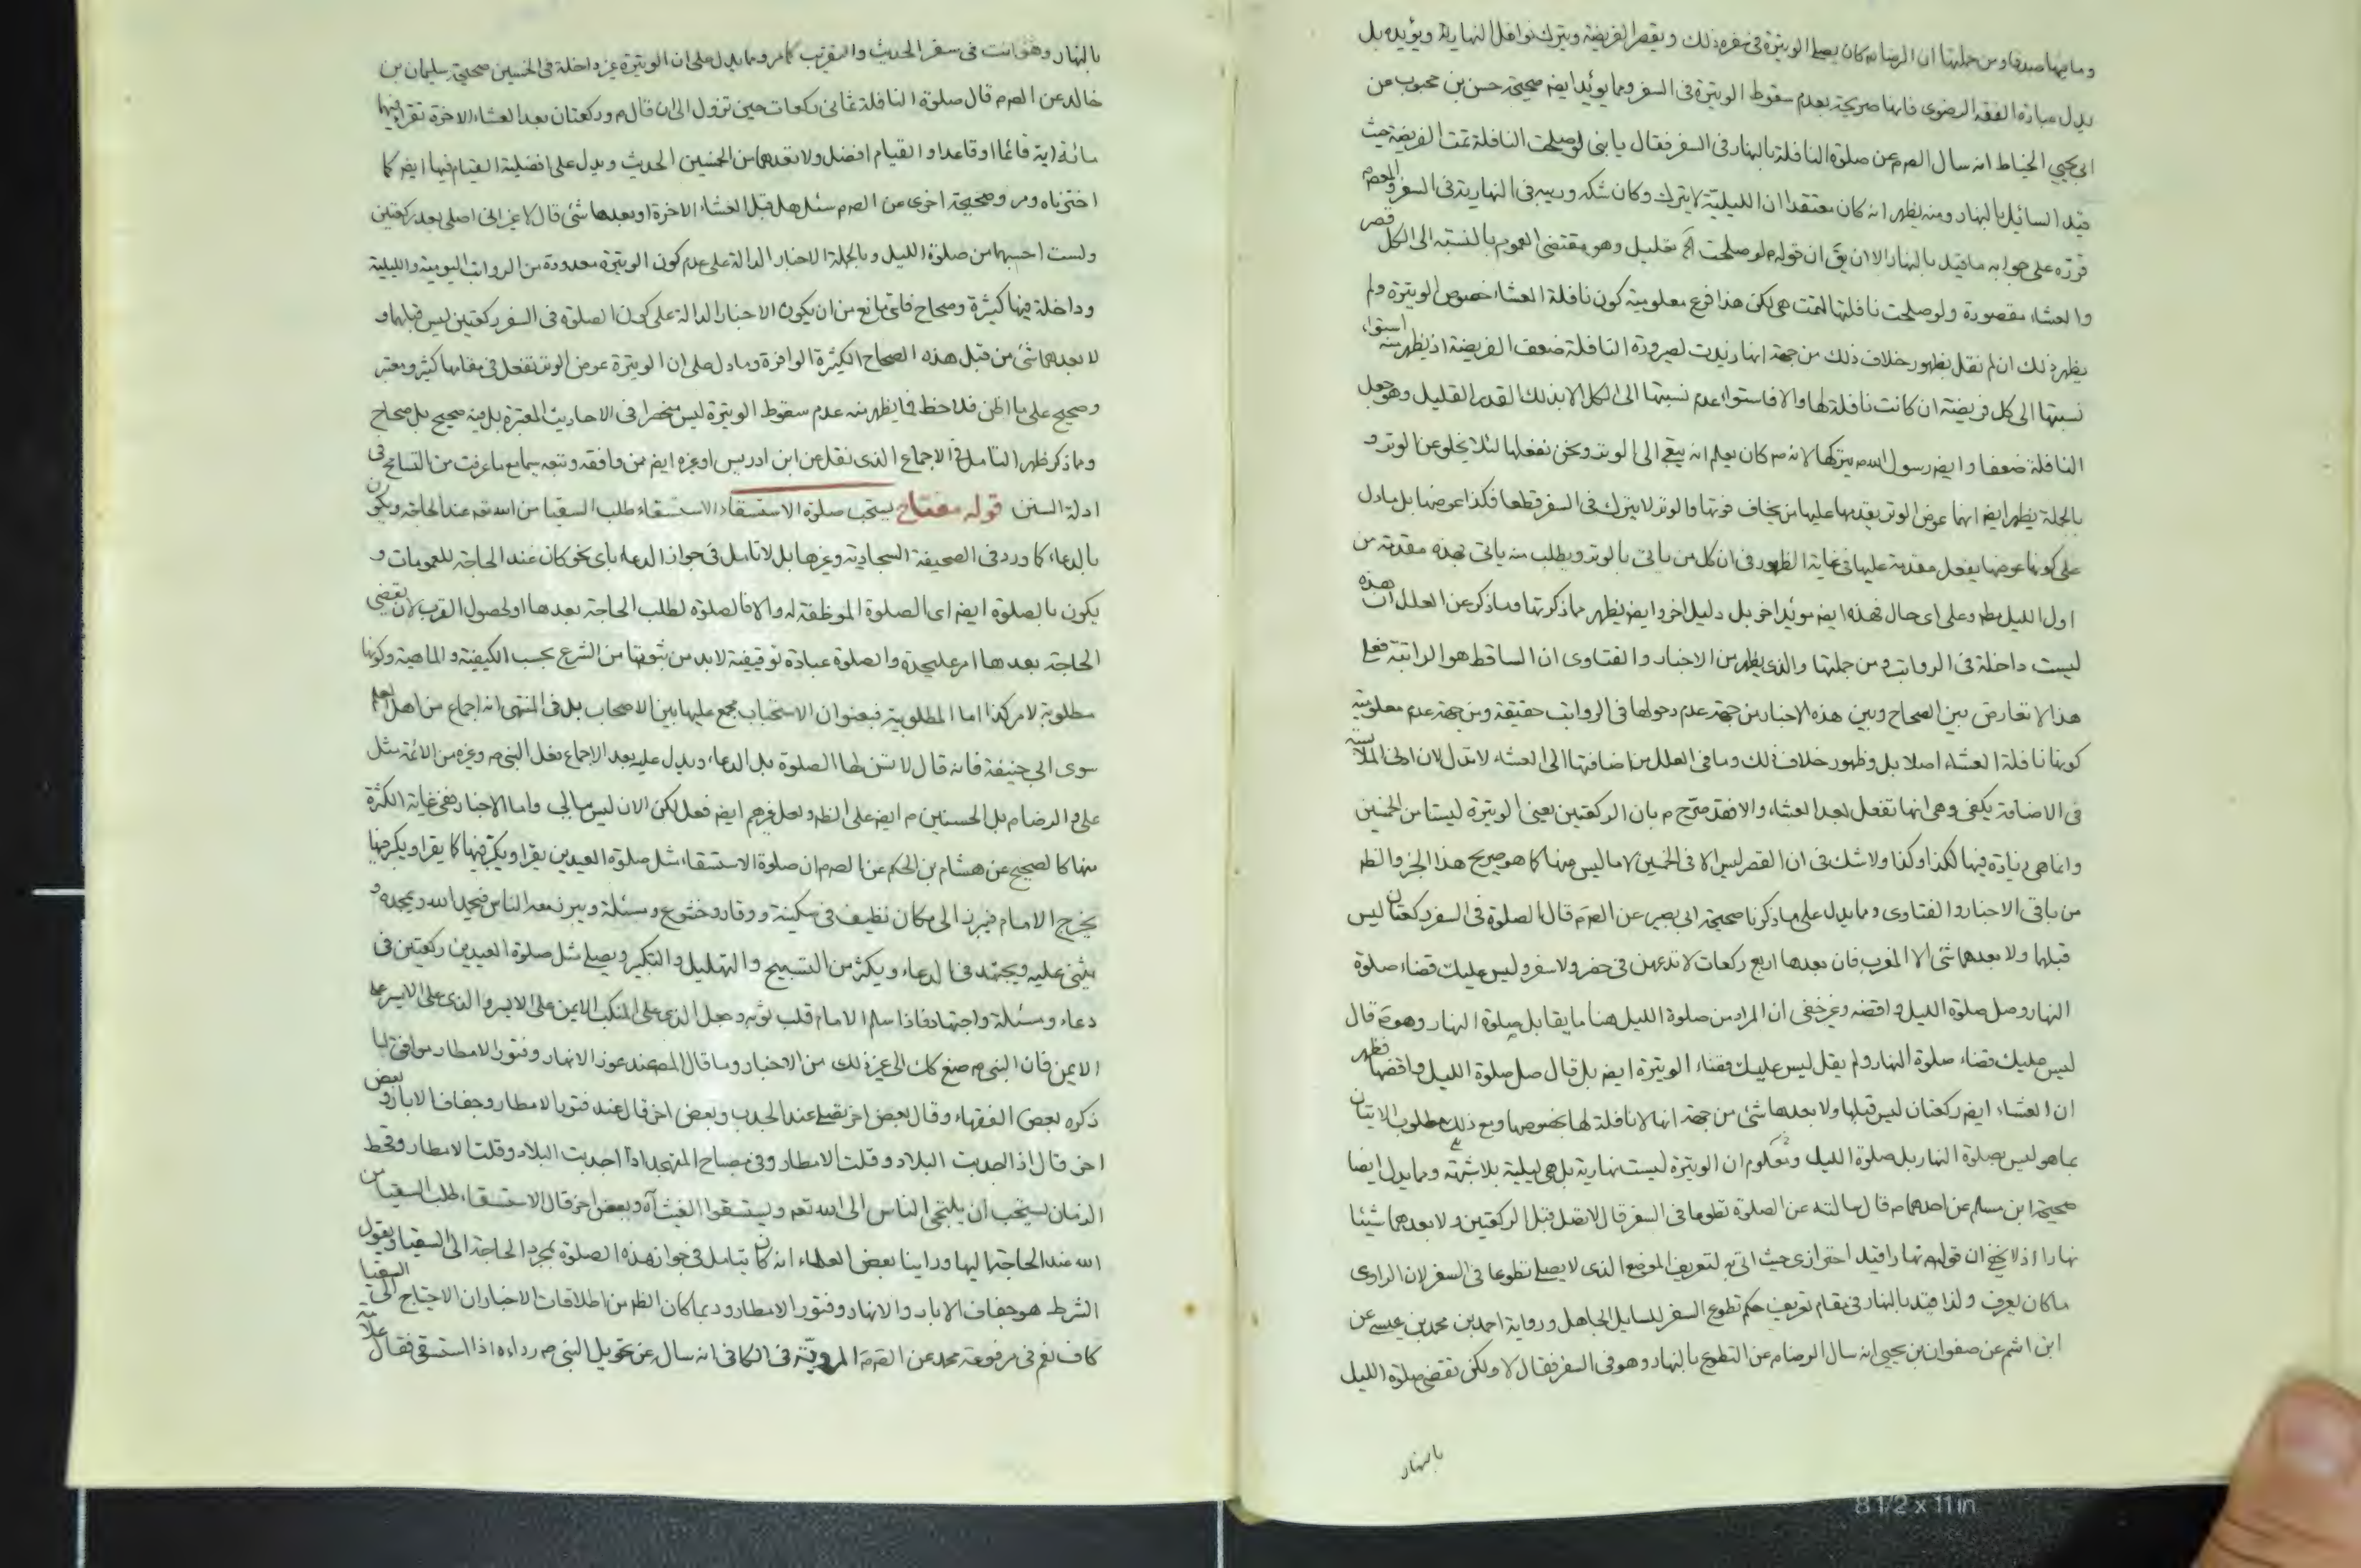 وما بهما صدقا ومن جملتها ان الرضا م كان يصلي الوتيرة في سفره ذلك ويقصر الفريضة ويترك نوافل النهارية ويؤيده بل
يدل عبارة الفقه الرضوى فانها صريحة بعدم سقوط الوتيرة في السفر ومما يؤيد ايضا صحيحة حسن بن محبوب عن
ابى يحيى الحناط انه سال الصم عن صلوة النافلة بالنهار في السفر فقال يا بنى لو صلحت النافلة تمت الفريضة حيث
قيد السائل بالنهار ومنه يظهر انه كان معتقدا ان الليلية لا يترك وكان شكه وريبه في النهارية في السفر والمعصوم م
قرره على جوابه ما قيد بالنهار الا ان يق ان قوله م لو صلحت آلخ تعليل وهو مقتضى العموم بالنسبة الى الكل قصر
والعشاء مقصورة ولو صلحت نافلتها لتمت هى لكن هذا فرع معلومية كون نافلة العشاء خصوص الوتيرة ولم
يظهر ذلك ان لم نقل بظهور خلاف ذلك من جهة انها زيدت لصيرورة النافلة ضعف الفريضة اذ يظهر منه استواء
نسبتها الى كل فريضة ان كانت نافلة لها والا فاستواء عدم نسبتها الى الكل الا بذلك القدر القليل وهو جعل
النافلة ضعفا وايضا رسول الله ص يتركها لانه ص كان يعلم انه يبقى الى الوتر ونحن نفعلها لئلا يخلو عن الوتر و
بالجملة يظهر ايضا انها عوض الوتر يقدمها عليها من يخاف فوتها والوتر لا يترك في السفر قطعا فكذا عوضها بل ما دل
على كونها عوضها يفعل مقدمة عليها في غاية الظهور في ان كل من ياتى بالوتر ويطلب منه ياتى بهذه مقدمة من
اول الليل مط وعلى اى حال فهذه ايضا مؤيد اخر بل دليل اخر وايضا يظهر مما ذكرتها وما ذكر عن العلل ان هذه
ليست داخلة في الرواتب ومن جملتها والذى يظهر من الاخبار والفتاوى ان الساقط هو الراتبة فعلى
هذا لا تعارض بين الصحاح وبين هذه الاخبار من جهة عدم دخولها في الرواتب حقيقة ومن جهة عدم معلومية
كونها نافلة العشاء اصلا بل وظهور خلاف ذلك وما في العلل من اضافتها الى العشاء لا تدل لان ادنى الملابسة
في الاضافة يكفى وهى انها تفعل بعد العشاء والا فقد صرح م بان الركعتين يعنى الوتيرة ليستا من الخمسين
وانما هى زيادة فيها لكذا وكذا ولا شك في ان القصر ليس الا في الخمسين لا ما ليس منها كما هو صريح هذا الخبر والظ
من باقى الاخبار والفتاوى ومما يدل على ما ذكرنا صحيحة ابى بصير عن الصم قال الصلوة في السفر ركعتان ليس
قبلهما ولا بعدهما شئ الا المغرب فان بعدها اربع ركعات لا تدعهن في حضر ولا سفر وليس عليك قضاء صلوة
النهار وصل صلوة الليل واقضه وغير خفى ان المراد من صلوة الليل هنا ما يقابل صلوة النهار وهو م قال
ليس عليك قضاء صلوة النهار ولم يقل ليس عليك قضاء الوتيرة ايضا بل قال صل صلوة الليل واقضها فظهر
ان العشاء ايضا ركعتان ليس قبلها ولا بعدها شئ من جهة انها لا نافلة لها بخصوصها ومع ذلك مطلوب الاتيان
بما هو ليس بصلوة النهار بل صلوة الليل ومعلوم ان الوتيرة ليست نهارية بل هى ليلية بلا شبهة ومما يدل ايضا
صحيحة ابن مسلم عن احدهما م قال سالته عن الصلوة تطوعا في السفر قال لا تصل قبل الركعتين ولا بعدهما شيئا
نهارا اذ لا يخفى ان قوله م نهارا قيد احترازى حيث اتى به لتعريف الموضع الذى لا يصلى تطوعا في السفر لان الراوى
ما كان يعرف ولذا قيد بالنهار في مقام تعريف حكم تطوع السفر للسايل الجاهل ورواية احمد بن محمد بن عيسى عن
ابن اشيم عن صفوان بن يحيى انه سال الرضا م عن التطوع بالنهار وهو في السفر فقال لا ولكن تقضى صلوة الليل
بالنهار
بالنهار وهو انت في سفر الحديث والتقريب كما مر ومما يدل على ان الوتيرة غير داخلة في الخمسين صحيحة سليمان بن
خالد عن الصم قال صلوة النافلة ثمانى ركعات حين تزول الى ان قال م وركعتان بعد العشاء الاخرة تقرا فيها
مائة اية قائما او قاعدا والقيام افضل ولا تعدهما من الخمسين الحديث ويدل على افضلية القيام فيها ايضا كما
اخترناه ومر وصحيحة اخرى عن الصم سئل هل قبل العشاء الاخرة او بعدها شئ قال لا غير انى اصلى بعد ركعتين
ولست احسبهما من صلوة الليل وبالجملة الاخبار الدالة على عدم كون الوتيرة معدودة من الرواتب اليومية والليلية
وداخلة فيها كثيرة وصحاح فاى مانع من ان يكون الاخبار الدالة على كون الصلوة في السفر ركعتين ليس قبلهما و
لا بعدهما شئ من قبل هذه الصحاح الكثيرة الوافرة وما دل على ان الوتيرة عوض الوتر تفعل في مقامها كثير ومعتبر
وصحيح على ما اظن فلاحظ فما يظهر منه عدم سقوط الوتيرة ليس منحصرا في الاحاديث المعتبرة بل منه صحيح بل صحاح
ومما ذكر ظهر التامل في الاجماع الذى نقل عن ابن ادريس او غيره ايضا ممن وافقه وتبعه سيما مع ما عرفت من التسامح في
ادلة السنن قوله مفتاح يستحب صلوة الاستسقاء الاستسقاء طلب السقيا من الله تعه عند الحاجة ويكون
بالدعاء كما ورد في الصحيفة السجادية وغيرها بل لا تامل في جواز الدعاء باى نحو كان عند الحاجة للعمومات و
يكون بالصلوة ايضا اى الصلوة الموظفة له والا فالصلوة لطلب الحاجة بعدها او لحصول القرب لان تقضى
الحاجة بعدها امر عليحدة والصلوة عبادة توقيفية لا بد من ثبوتها من الشرع بحسب الكيفية والماهية وكونها
مطلوبة لامر كذا اما المطلوبية فبعنوان الاستحباب مجمع عليها بين الاصحاب بل في المنتهى انه اجماع من اهل العلم
سوى ابى حنيفة فانه قال لا تسن لها الصلوة بل الدعاء ويدل عليه بعد الاجماع فعل النبى ص وغيره من الائمة مثل
على والرضا م بل الحسنين م ايضا على الظ ولعل غيرهم ايضا فعل لكن الان ليس ببالى واما الاخبار ففى غاية الكثرة
منها كالصحيح عن هشام بن الحكم عن الصم ان صلوة الاستسقاء مثل صلوة العيدين يقرا ويكبر فيها كما يقرا ويكبر فيها
يخرج الامام فيبرز الى مكان نظيف في سكينة ووقار وخشوع ومسئلة ويبرز معه الناس فيحمد الله ويمجده و
يثنى عليه ويجتهد في الدعاء ويكثر من التسبيح والتهليل والتكبير ويصلى مثل صلوة العيدين ركعتين في
دعاء ومسئلة واجتهاد فاذا سلم الامام قلب ثوبه وجعل الذى على المنكب الايمن على الايسر والذى على الايسر على
الايمن فان النبى ص صنع كك الى غير ذلك من الاخبار وما قال المص عند غور الانهار وفتور الامطار موافق لما
ذكره بعض الفقهاء وقال بعض اخر تصلى عند الجدب وبعض اخر قال عند فتور الامطار وجفاف الابار وبعض
اخر قال اذا اجدبت البلاد وقلت الامطار وفى مصباح المتهجد اذا اجدبت البلاد وقلت الامطار وقحط
الزمان يستحب ان يلتجى الناس الى الله تعه ويستسقوا الغيث آه وبعض اخر قال الاستسقاء طلب السقيا من
الله عند الحاجة اليها وراينا بعض العلماء انه كان يتامل في جواز هذه الصلوة بمجرد الحاجة الى السقيا ويقول
الشرط هو جفاف الابار والانهار وفتور الامطار وربما كان الظ من اطلاقات الاخبار ان الاحتياج الى السقيا
كاف نعم في مرفوعة محمد عن الصم المروية في الكافى انه سال عن تحويل النبى ص رداءه اذا استسقى فقال علامة